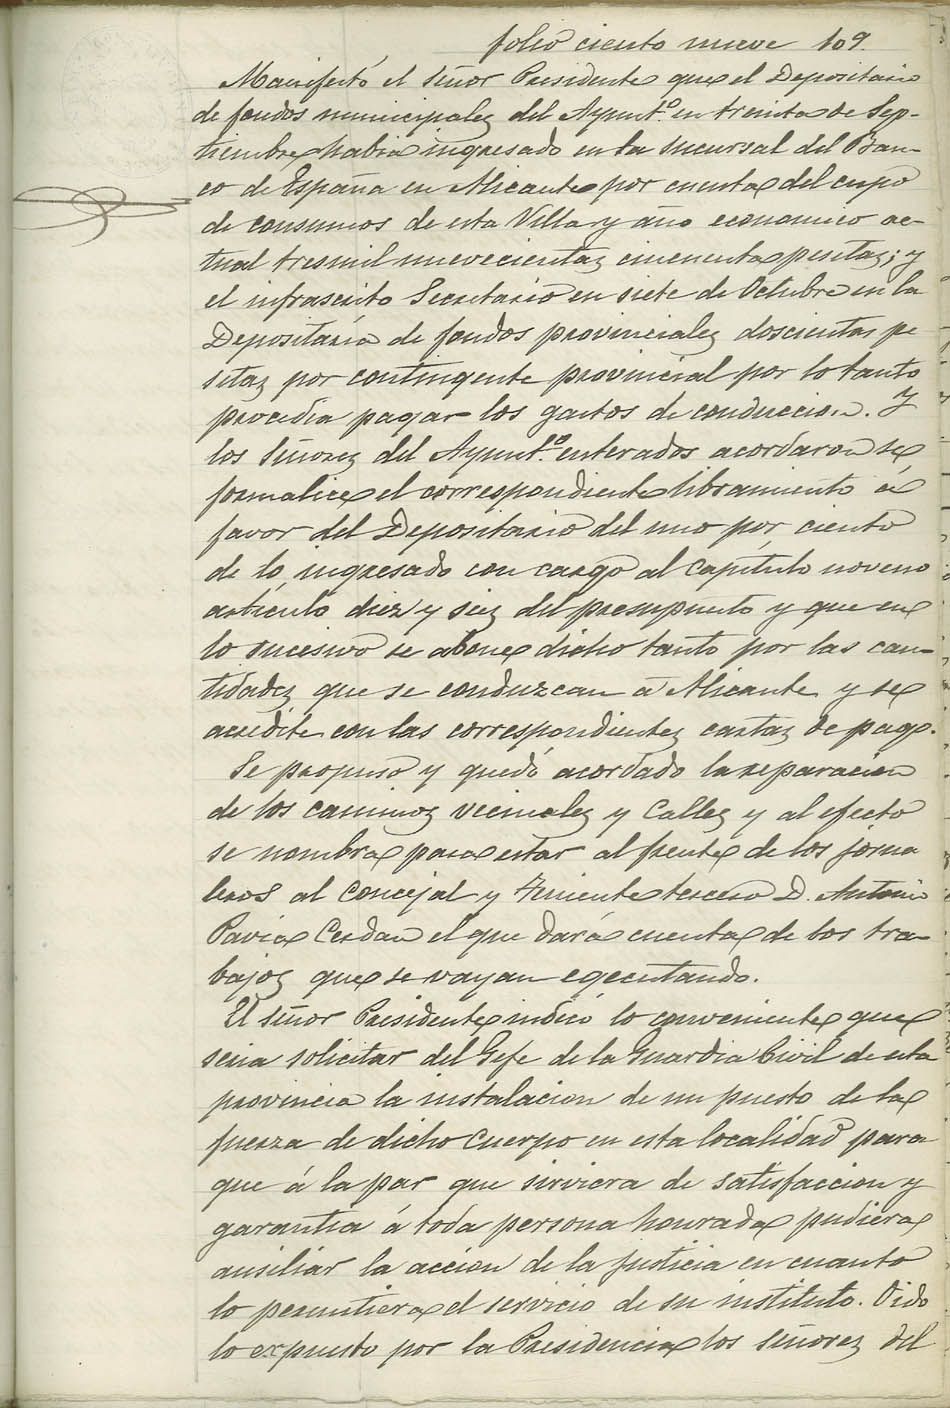 folio ciento nueve 109.
Manifestó el Señor Presidente que el Depositario
de fondos municipales del Ayunt.º en treinta de Sep-
tiembre habia ingresado en la Sucursal del Ban-
co de España en Alicante por cuenta del cupo
de consumos de esta Villa y año economico ac-
tual tres mil nuevecientas cincuenta pesetas; y
el infrascrito Secretario en siete de Octubre en la
Depositaría de fondos provinciales doscientas pe
setas por contingente provincial por lo tanto
procedia pagar los gastos de conduccion. Y
los Señores del Ayunt.º enterados acordaron se
formalice el correspondiente libramiento á
favor del Depositario del uno por ciento
de lo ingresado con cargo al Capítulo noveno
artículo diez y seis del presupuesto y que en
lo sucesivo se abone dicho tanto por las can-
tidades que se conduzcan á Alicante y se
acredite con las correspondientes cartas de pago.
Se propuso y quedó acordado la reparacion
de los caminos vecinales y Calles y al efecto
se nombra para estar al frente de los jorna
leros al Concejal y Teniente tercero D. Antonio
Pavia Cerdan el que dará cuenta de los tra-
bajos que se vayan egecutando.
El Señor Presidente indicó lo conveniente que
seria solicitar del Gefe de la Guardia Civil de esta
provincia la instalacion de un puesto de la
fuerza de dicho Cuerpo en esta localidad para
que á la par que sirviera de satisfaccion y
garantia á toda persona honrada pudiera
ausiliar la acción de la Justicia en cuanto
lo permitiera el servicio de su instituto. Oido
lo expuesto por la Presidencia los Señores del